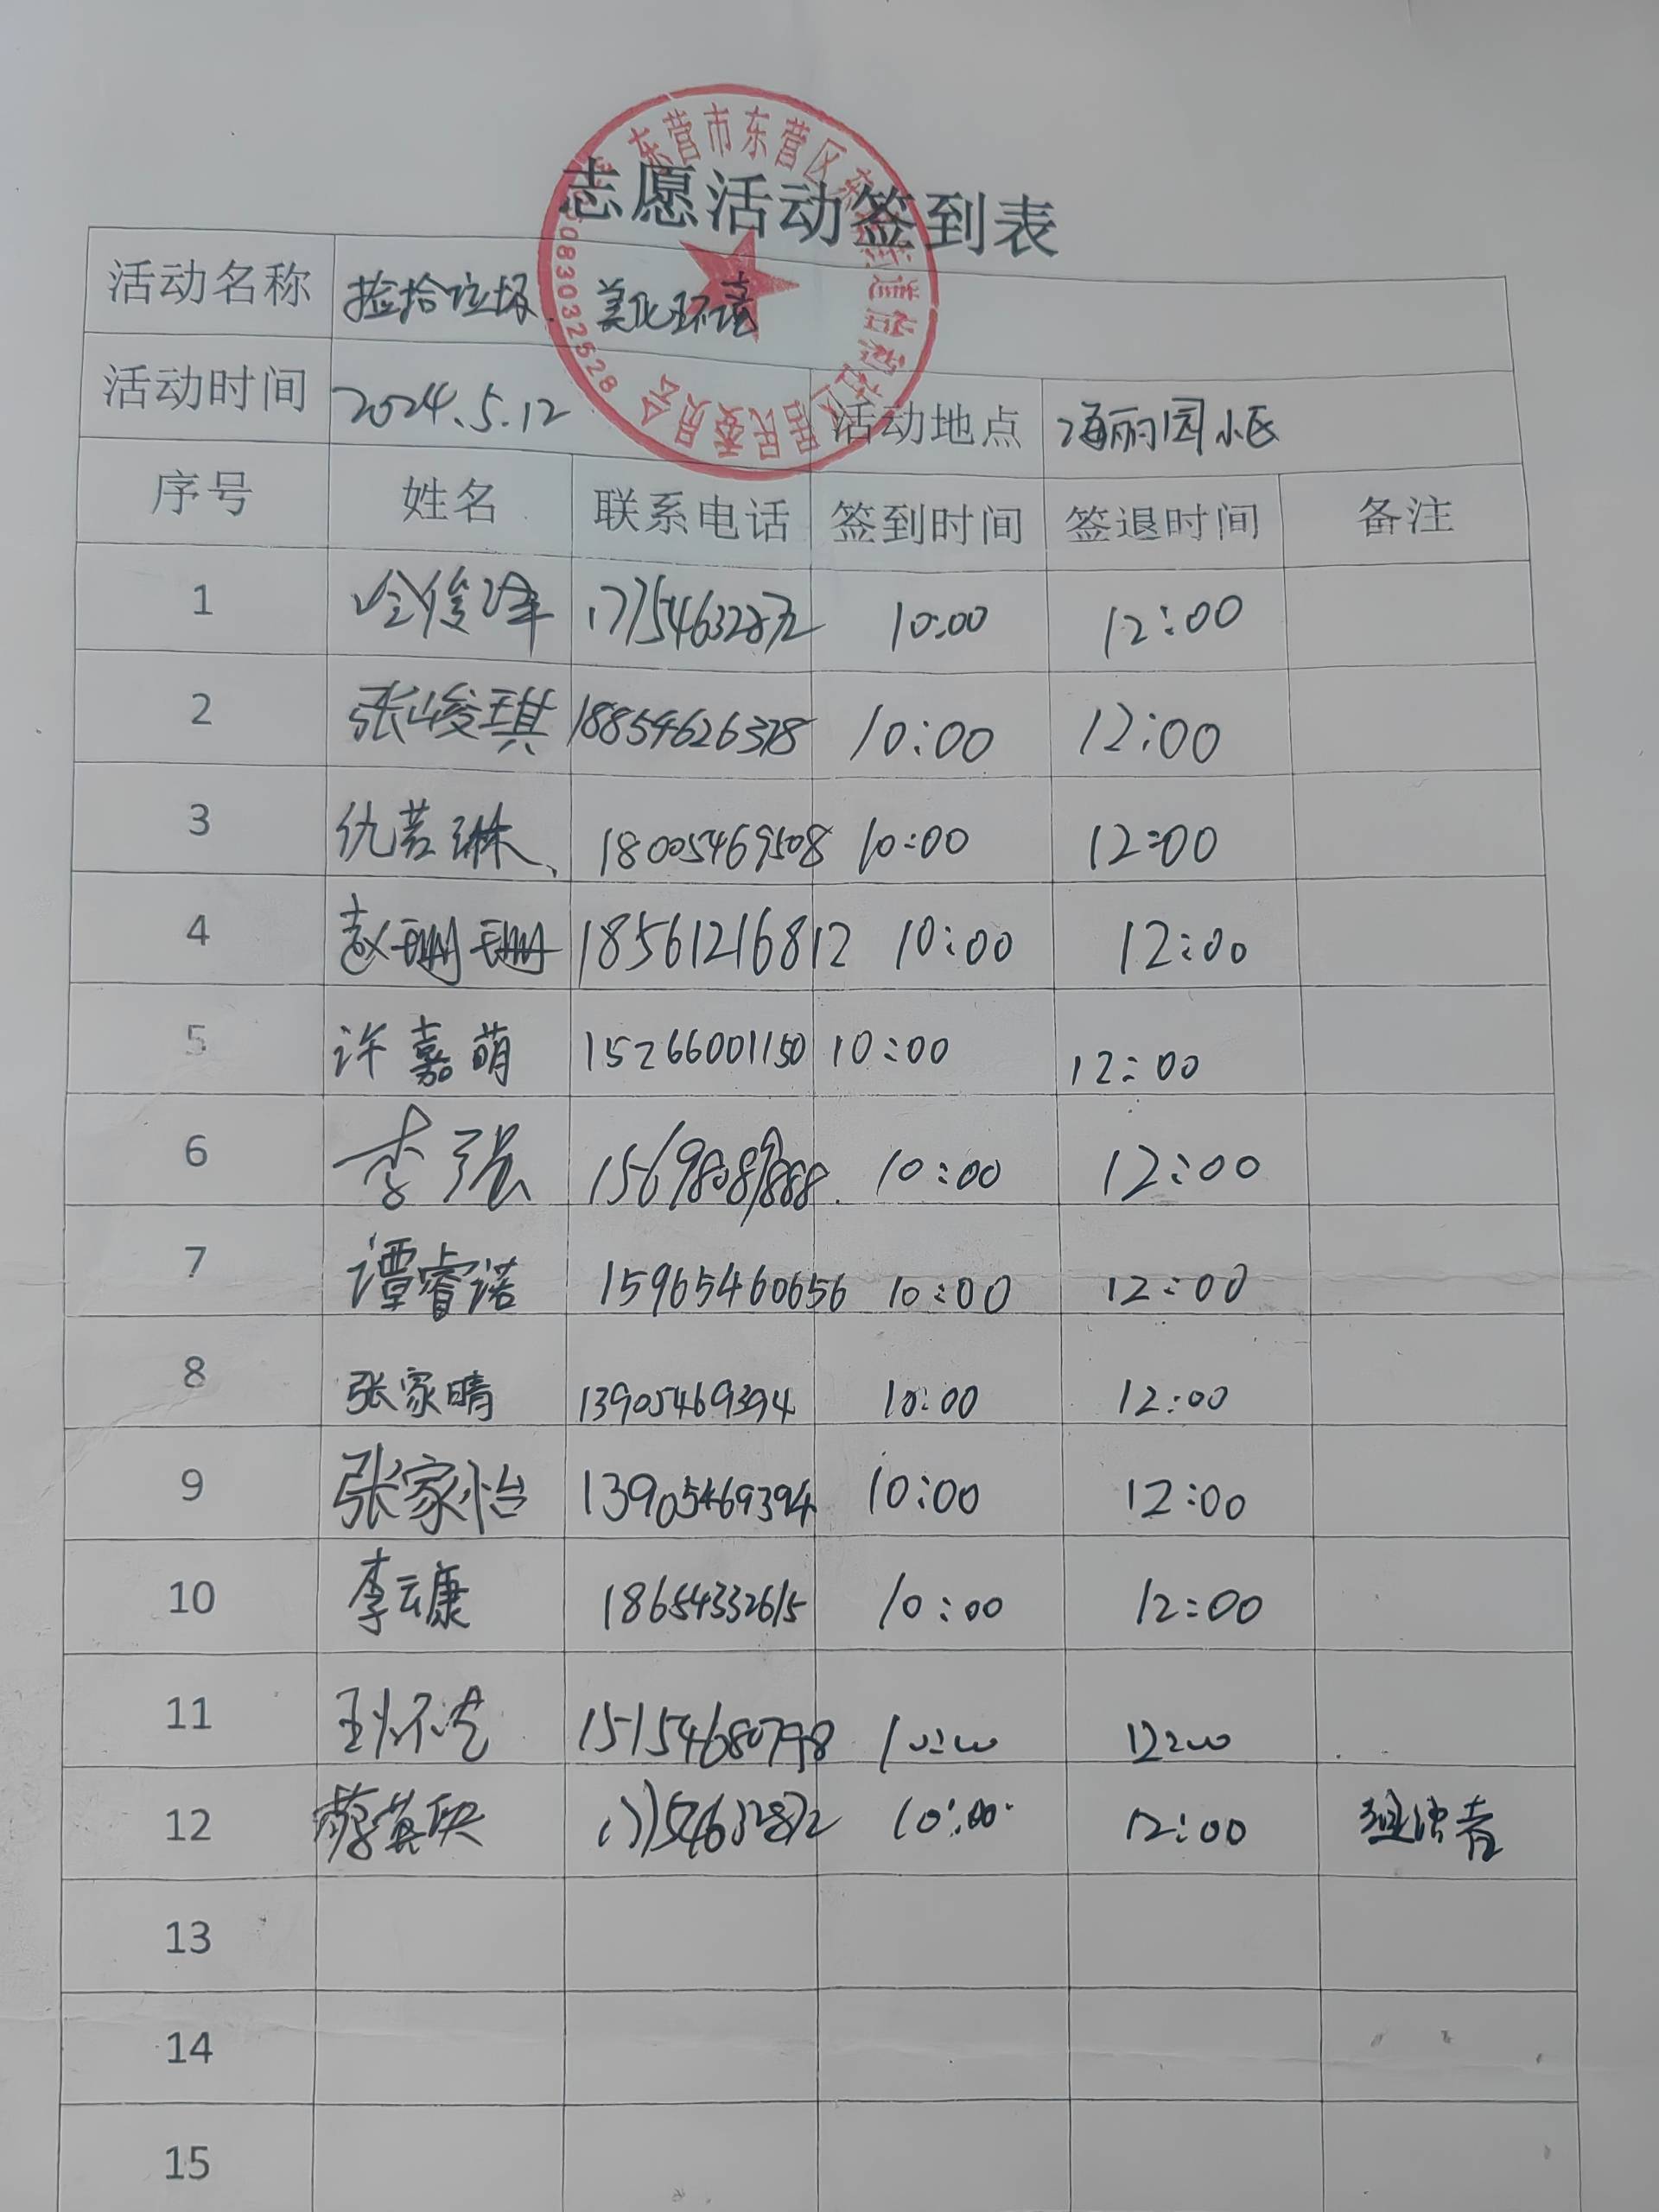 东营市东营区东 街道 社区居民委员会
志愿活动签到表
活动名称 捡拾垃圾 美化环境
活动时间 2024.5.12 活动地点 海丽园小区
序号 姓名 联系电话 签到时间 签退时间 备注
1 俊泽 10:00 12:00
2 张峻琪 18854626378 10:00 12:00
3 仇若琳 18005469508 10:00 12:00
4 赵珊珊 18561216812 10:00 12:00
5 许嘉萌 15266001150 10:00 12:00
6 李强 10:00 12:00
7 谭睿诺 15965460656 10:00 12:00
8 张家晴 13905469394 10:00 12:00
9 张家怡 13905469394 10:00 12:00
10 李云康 18654332615 10:00 12:00
11 王 15154680798 10:00 12:00
12 17754632872 10:00 12:00 组织者
13
14
15